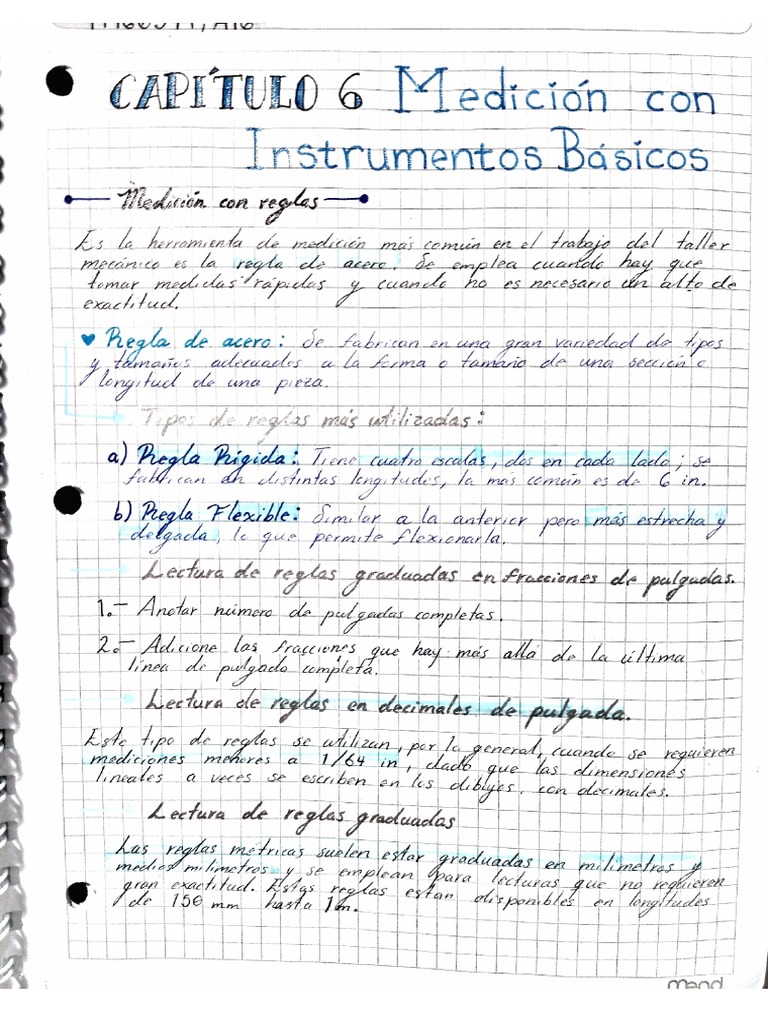 CAPÍTULO 6 Medición con
Instrumentos Básicos
Medición con reglas
Es la herramienta de medición más común en el trabajo del taller
mecánico es la regla de acero. Se emplea cuando hay que
tomar medidas rápidas y cuando no es necesario un alto de
exactitud.
Regla de acero: Se fabrican en una gran variedad de tipos
y tamaños adecuados a la forma o tamaño de una sección o
longitud de una pieza.
Tipos de reglas más utilizadas:
a) Regla Rígida: Tiene cuatro escalas, dos en cada lado; se
fabrican en distintas longitudes, la mas común es de 6 in.
b) Regla Flexible: Similar a la anterior pero más estrecha y
delgada, lo que permite flexionarla.
Lectura de reglas graduadas en fracciones de pulgadas.
1.- Anotar número de pulgadas completas.
2.- Adicione las fracciones que hay más allá de la última
línea de pulgada completa.
Lectura de reglas en decimales de pulgada.
Este tipo de reglas se utilizan, por lo general, cuando se requieren
mediciones menores a 1/64 in, dado que las dimensiones
lineales a veces se escriben en los dibujos, con decimales.
Lectura de reglas graduadas
Las reglas métricas suelen estar graduadas en milímetros y
medios milímetros y se emplean para lecturas que no requieren
gran exactitud. Estas reglas estan disponibles en longitudes
de 150 mm hasta 1m.